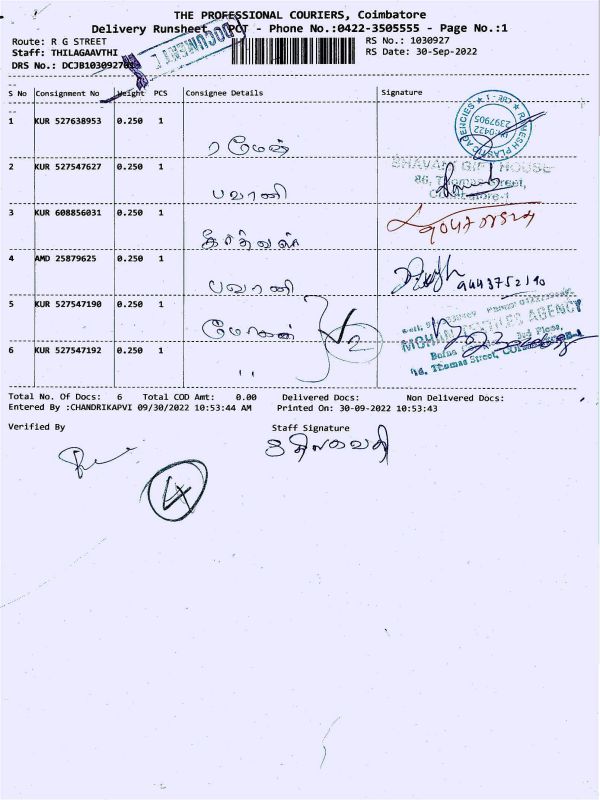 THE PROFESSIONAL COURIERS, Coimbatore
Delivery Runsheet - PCT - Phone No.:0422-3505555 - Page No.:1
Route: R G STREET
RS No.: 1030927
Staff: THILAGAAVTHI
RS Date: 30-Sep-2022
DRS No.: DCJB103092701
DOCUMENT
S No Consignment No Weight PCS Consignee Details Signature
1 KUR 527638953 0.250 1 ரமேஷ்
RAMESH PLASTIC AGENCIES
CBE - 1
PH:0422
2397905
2 KUR 527547627 0.250 1 பவானி
BHAVANI GIFT HOUSE
86, Thomas Street,
Coimbatore-1
3 KUR 608856031 0.250 1
4 AMD 25879625 0.250 1 பவானி
9443752190
5 KUR 527547190 0.250 1 மோகன்
MOHAN AGENCY
2nd Floor,
16, Thomas Street,
6 KUR 527547192 0.250 1 "
2
Total No. Of Docs: 6 Total COD Amt: 0.00 Delivered Docs: Non Delivered Docs:
Entered By :CHANDRIKAPVI 09/30/2022 10:53:44 AM Printed On: 30-09-2022 10:53:43
Verified By Staff Signature
திலகவதி
4